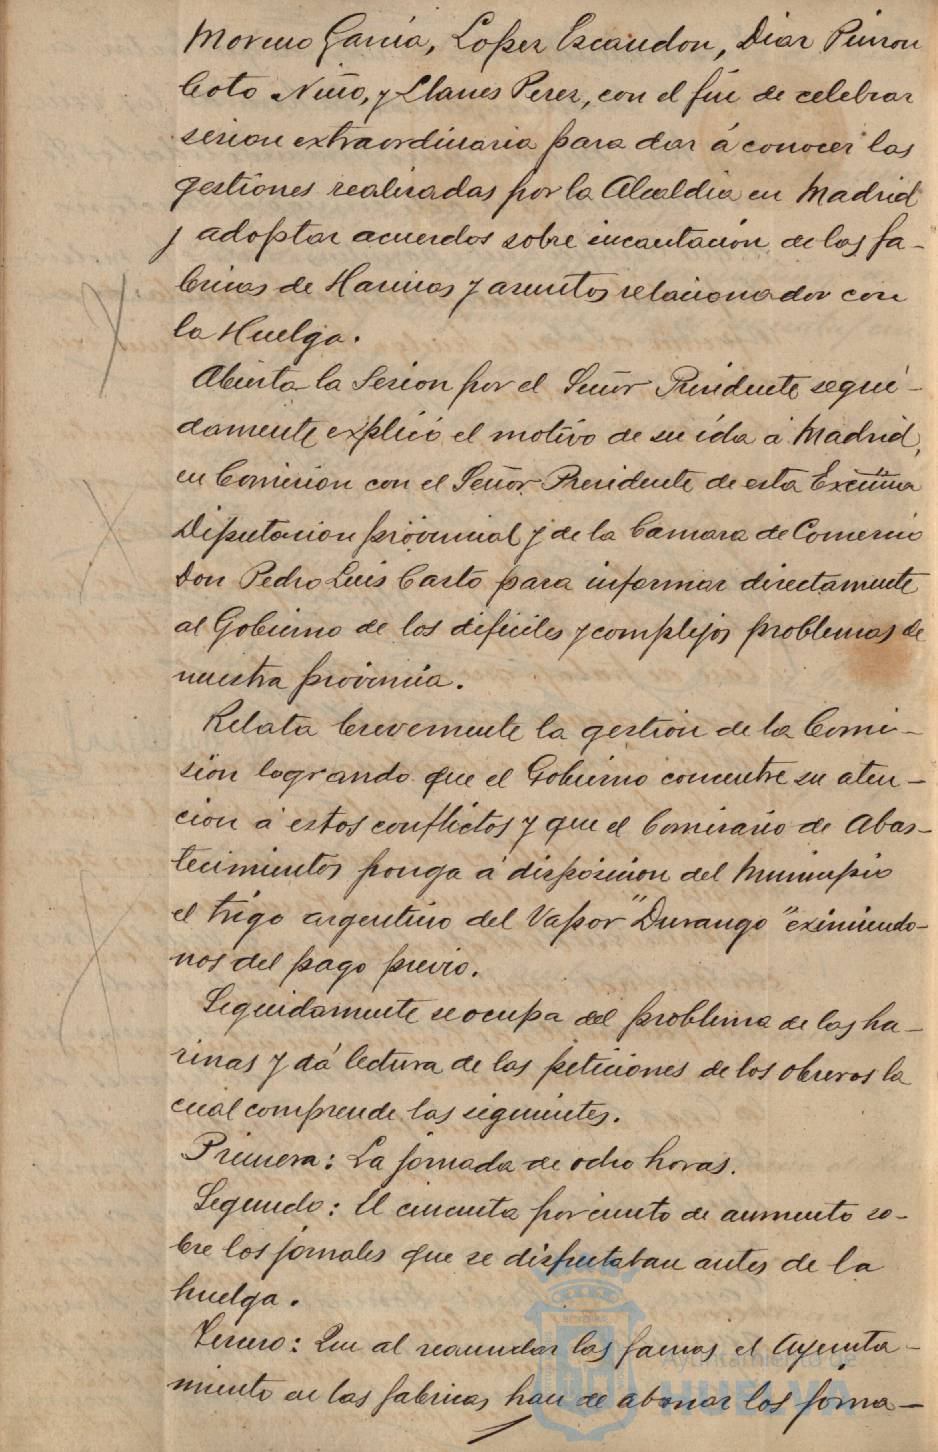 Moreno García, Lopez Escandon, Diaz Pinzon
Coto Niño, y Llanes Perez, con el fin de celebrar
sesion extraordinaria para dar á conocer las
gestiones realizadas por la Alcaldia en Madrid
y adoptar acuerdos sobre incautacion de las fa-
bricas de Harinas y asuntos relacionados con
la Huelga.
Abierta la Sesion por el Señor Presidente segui-
damente explicó el motivo de su ida á Madrid,
en Comision con el Señor Presidente de esta Excma
Diputacion provincial y de la Camara de Comercio
Don Pedro Luis Casto para informar directamente
al Gobierno de los dificiles y complejos problemas de
nuestra provincia.
Relata brevemente la gestion de la Comi-
sion logrando que el Gobierno concentre su aten-
cion á estos conflictos y que el Comisario de Abas-
tecimientos ponga á disposicion del Municipio
el trigo argentino del Vapor "Durango" eximiendo-
nos del pago previo.
Seguidamente se ocupa del problema de las ha-
rinas y dá lectura de las peticiones de los obreros la
cual comprende las siguientes.
Primera: La jornada de ocho horas.
Segundo: El cincuenta por ciento de aumento so-
bre los jornales que se disfrutaban antes de la
huelga.
Tercero: Que al reanudar las faenas el Ayunta-
miento en las fabricas, han de abonar los jorna-
Ayuntamiento de
HUELVA